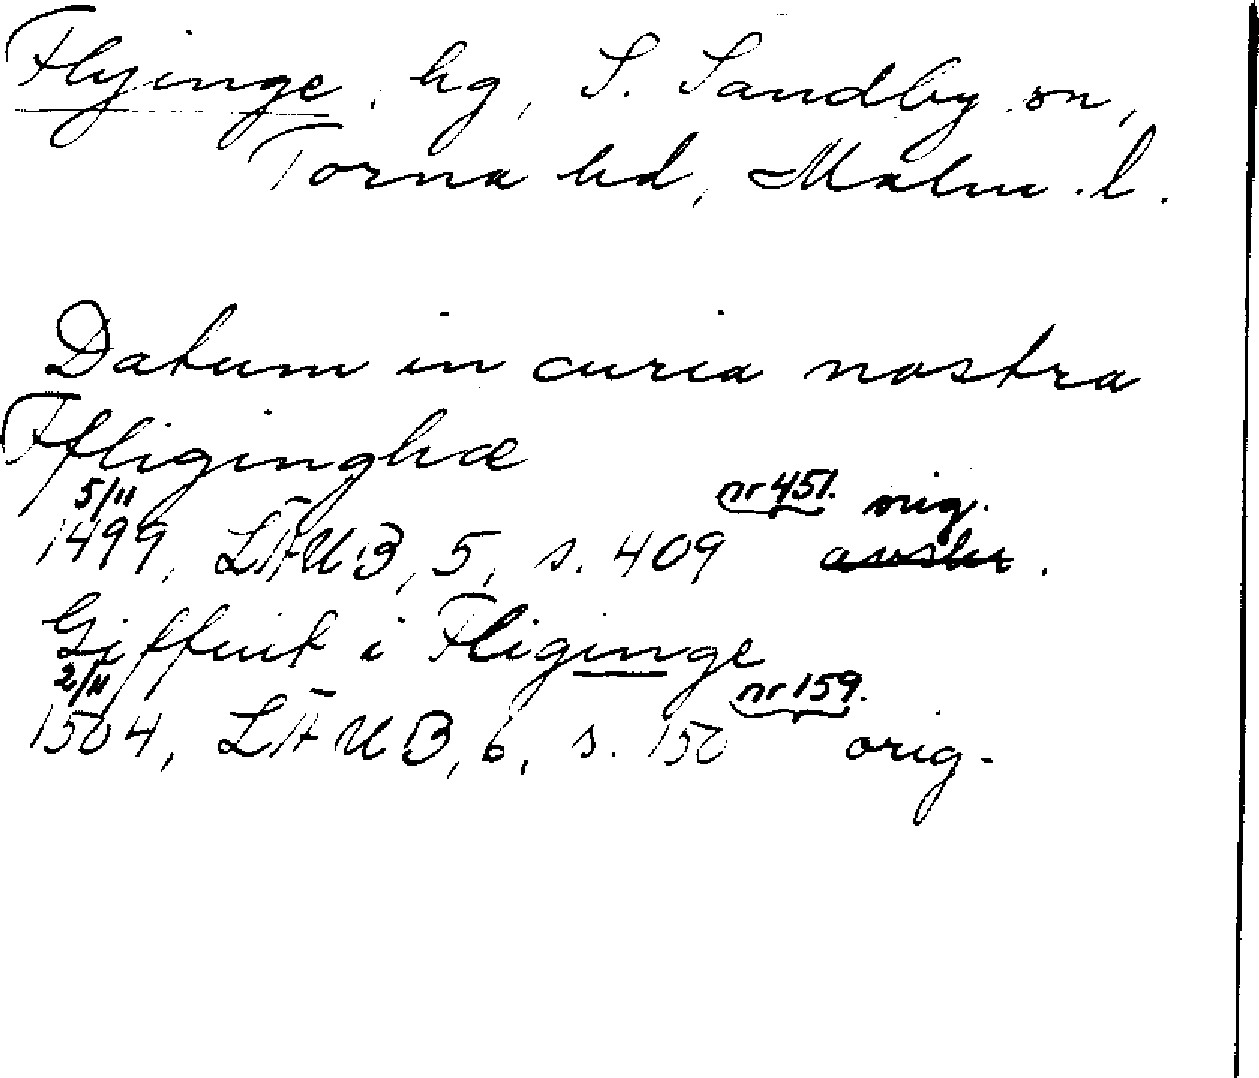 Flyinge, hg, S. Sandby sn,
Torna hd, Malm. l.
Datum in curia nostra
Ffliginghæ
5/11 nr 451. orig.
1499, LÄUB, 5, s. 409 avskr.
Giffuit i Fliginge
2/11 nr 159.
1504, LÄUB, 6, s. 150 orig.